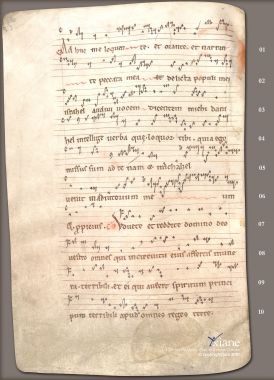 Adhuc me loquen te et orante et narran 01
te peccata mea et delicta populi mei 02
israhel audiui uocem dicentem michi dani 03
hel intellige uerba que loquor tibi quia ego 04
missus sum ad te nam et michahel 05
uenit in adiutorium me um 06
Uouete et reddite domino deo 07
uestro omnes qui in circuitu eius affertis mune 08
ra terribili et ei qui aufert spiritum princi 09
pum terribili apud omnes reges terre 10